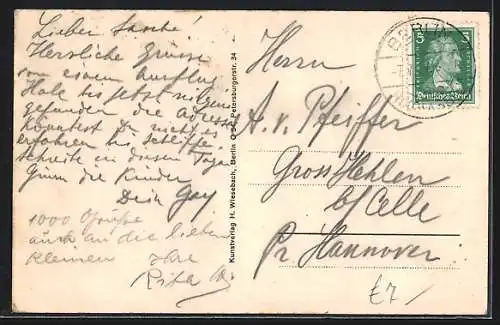 Lieber Sascha!
Herzliche Grüsse
von einem Ausflug
Habe bis jetzt nirgends
gefunden die Adresse
Könntest Du nicht es
erfahren bis
schreibe in diesen Tagen
die Kinder
Dein
1000 Grüsse
auch an die lieben
Kleinen Ihre
Rita
Kunstverlag H. Wiesebach, Berlin O 34, Petersburgerstr. 34
BERLIN
5 5
Deutsches Reich
Herrn
A. v. Pfeiffer
Gross Hehlen
b/ Celle
Pr. Hannover
£7/